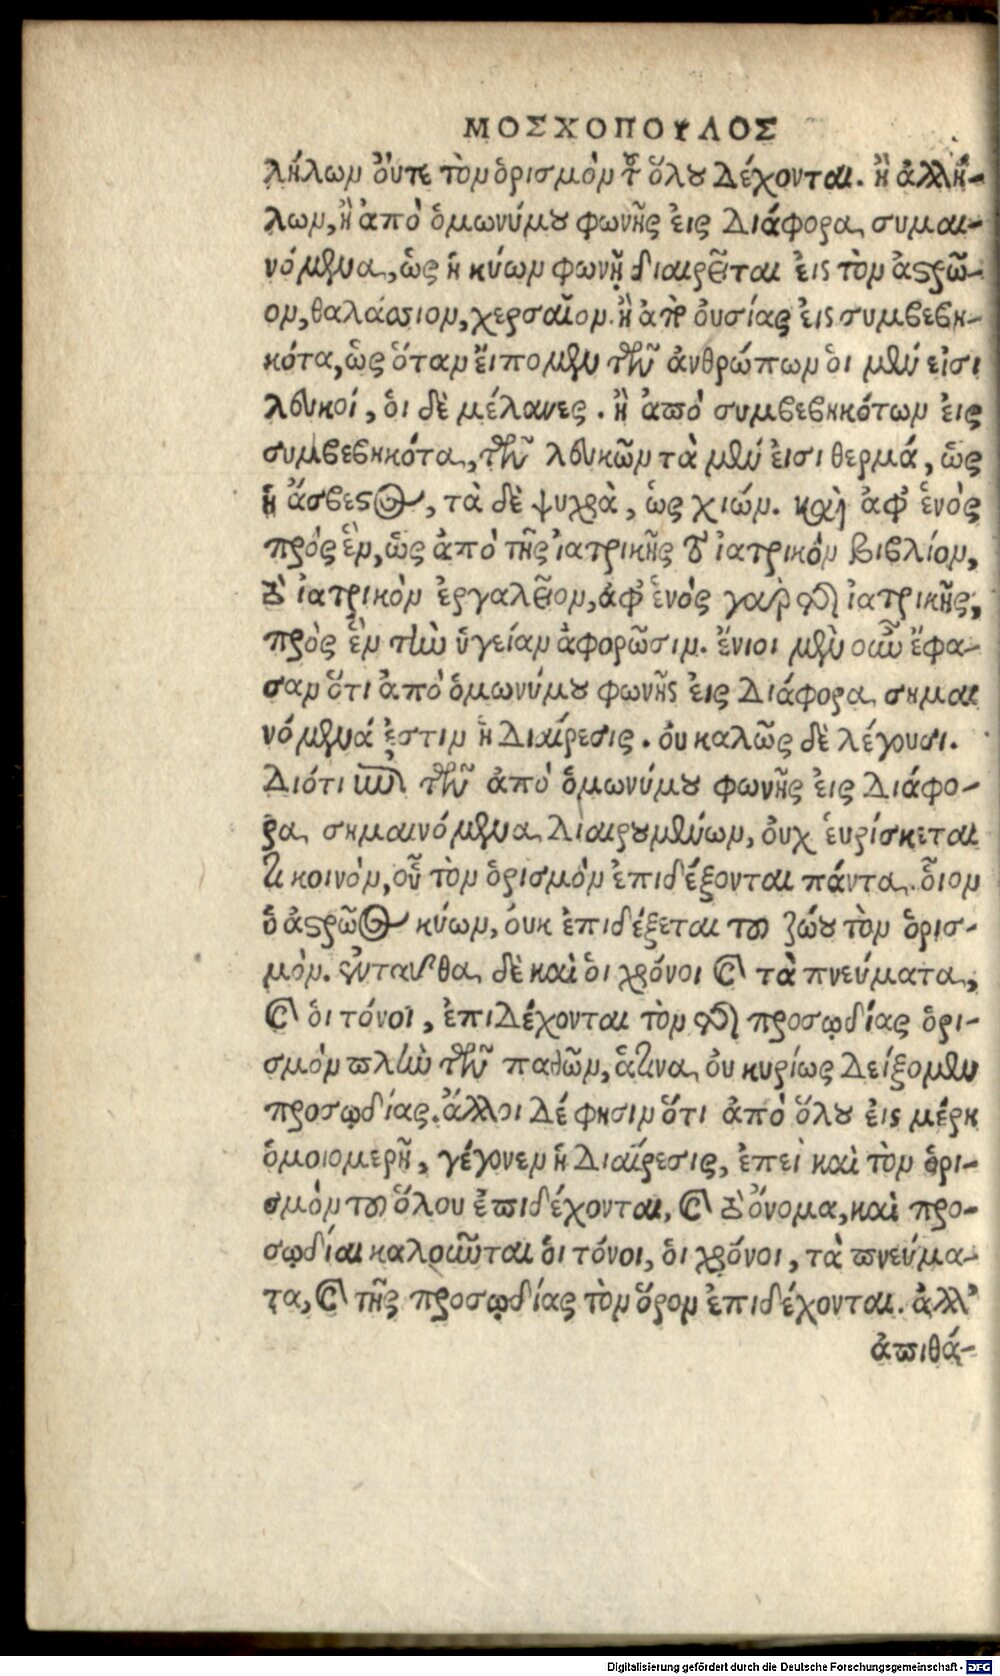 ΜΟΣΧΟΠΟΥΛΟΣ
λήλων οὔτε τὸν ὁρισμὸν τοῦ ὅλου δέχονται. ἢ ἀλλή-
λων, ἢ ἀπὸ ὁμωνύμου φωνῆς εἰς διάφορα συμαι-
νόμενα, ὡς ἡ κύων φωνὴ διαιρεῖται εἰς τὸν ἀστρῶ-
ον, θαλάσσιον, χερσαῖον. ἢ ἀπὸ οὐσίας εἰς συμβεβη-
κότα, ὡς ὅταν εἴπομεν τῶν ἀνθρώπων οἱ μέν εἰσι
λευκοί, οἱ δὲ μέλανες. ἢ ἀπὸ συμβεβηκότων εἰς
συμβεβηκότα, τῶν λευκῶν τὰ μέν εἰσι θερμά, ὡς
ἡ ἄσβεστος, τὰ δὲ ψυχρὰ, ὡς χιών. καὶ ἀφ' ἑνὸς
πρὸς ἓν, ὡς ἀπὸ τῆς ἰατρικῆς τὸ ἰατρικὸν βιβλίον,
τὸ ἰατρικὸν ἐργαλεῖον, ἀφ' ἑνὸς γὰρ τῆς ἰατρικῆς,
πρὸς ἓν τὴν ὑγείαν ἀφορῶσιν. ἔνιοι μὲν οὖν ἔφα-
σαν ὅτι ἀπὸ ὁμωνύμου φωνῆς εἰς διάφορα σημαι
νόμενά ἐστιν ἡ διαίρεσις. οὐ καλῶς δὲ λέγουσι.
Διότι ἐπὶ τῶν ἀπὸ ὁμωνύμου φωνῆς εἰς διάφο-
ρα σημαινόμενα διαιρουμένων, οὐχ εὑρίσκεται
τι κοινὸν, οὗ τὸν ὁρισμὸν ἐπιδέξονται πάντα. οἷον
ὁ ἀστρῶος κύων, οὐκ ἐπιδέξεται τοῦ ζώου τὸν ὁρισ-
μόν. ἐνταῦθα δὲ καὶ οἱ χρόνοι καὶ τὰ πνεύματα,
καὶ οἱ τόνοι, ἐπιδέχονται τὸν τῆς προσῳδίας ὁρι-
σμὸν πλὴν τῶν παθῶν, ἅτινα οὐ κυρίως δείξομεν
προσῳδίας. ἄλλοι δέ φησιν ὅτι ἀπὸ ὅλου εἰς μέρη
ὁμοιομερῆ, γέγονεν ἡ διαίρεσις, ἐπεὶ καὶ τὸν ὁρι-
σμὸν τοῦ ὅλου ἐπιδέχονται, καὶ τὸ ὄνομα, καὶ προ-
σῳδίαι καλοῦνται οἱ τόνοι, οἱ χρόνοι, τὰ πνεύμα-
τα, καὶ τῆς προσῳδίας τὸν ὅρον ἐπιδέχονται. ἀλλ'
ἀπιθά-
Digitalisierung gefördert durch die Deutsche Forschungsgemeinschaft - DFG